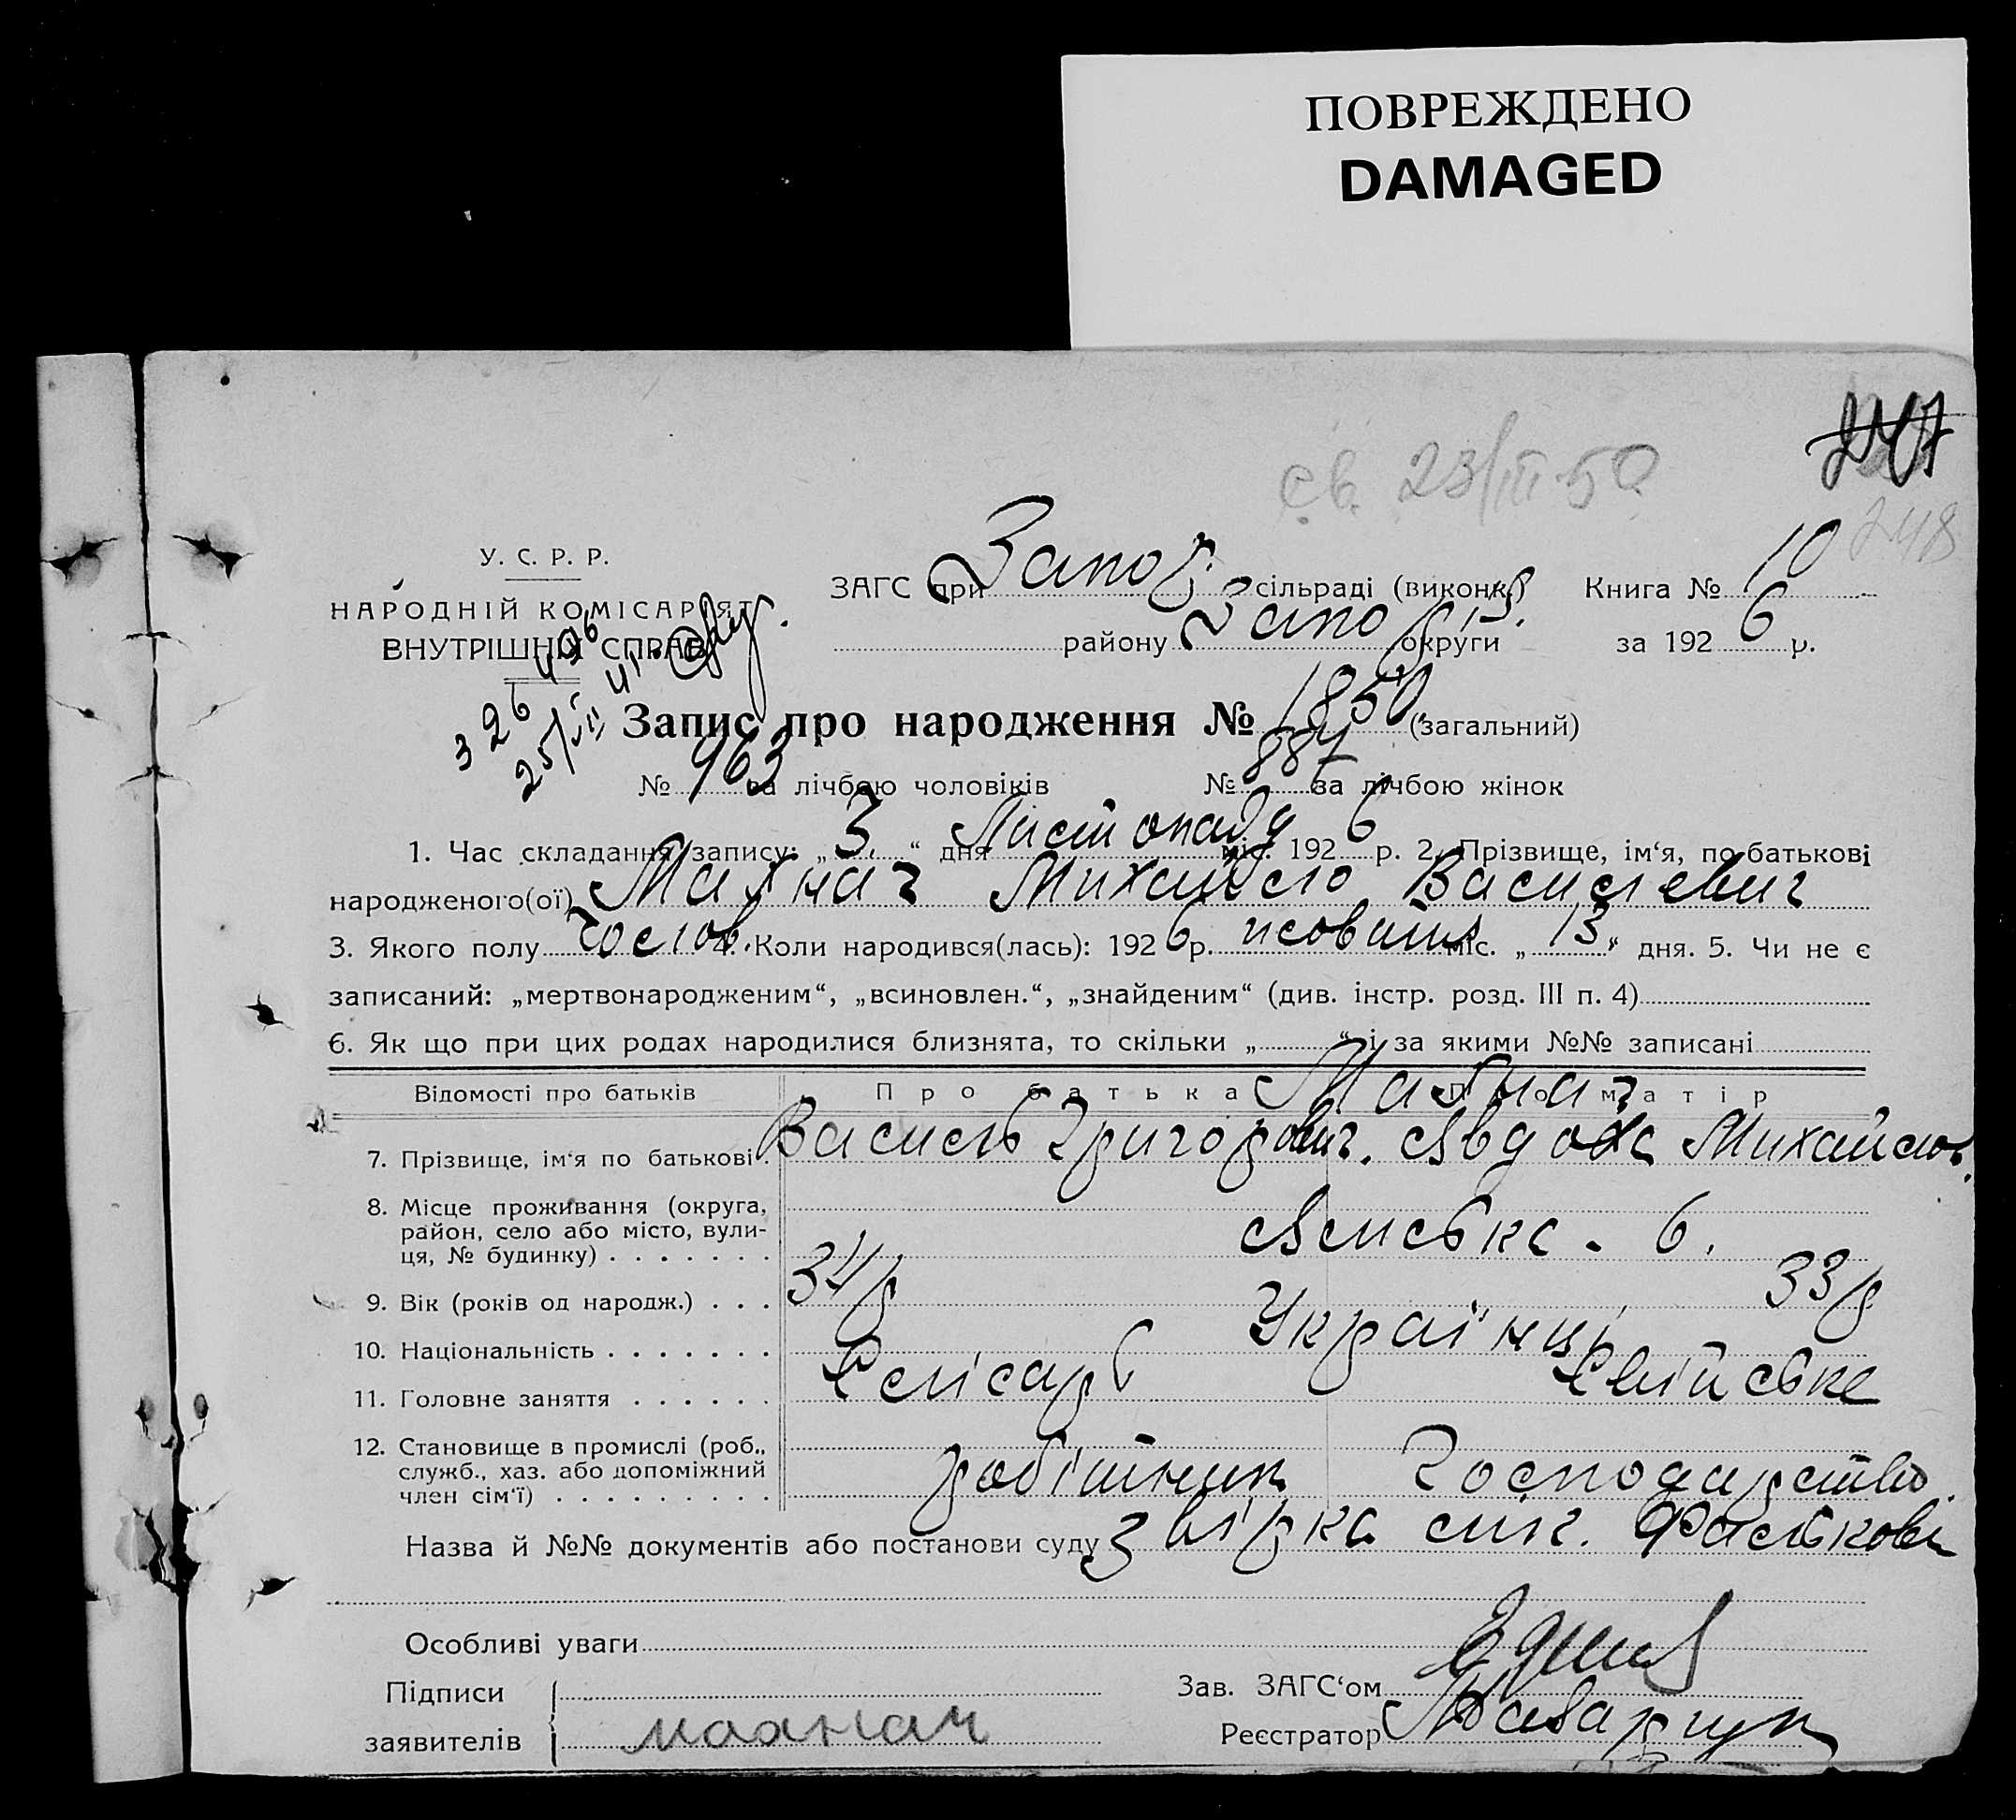 ПОВРЕЖДЕНО
DAMAGED
247
св. 23/III 50
248
У. С. Р. Р.
НАРОДНІЙ КОМІСАРІЯТ
ВНУТРІШНІХ СПРАВ
ЗАГС при Запор. сільраді (виконк.) Книга № 10
району Запоріз. округи за 1926 р.
Запис про народження № 1850 (загальний)
№ 963 за лічбою чоловіків № 887 за лічбою жінок
1. Час складання запису: „3.“ дня Листопада міс. 1926 р. 2. Прізвище, ім‘я, по батькові
народженого(ої) Махнач Михайло Василевич
3. Якого полу чолов. 4. Коли народився(лась): 1926 р. жовтня міс. „13“ дня. 5. Чи не є
записаний: „мертвонародженим“, „всиновлен.“, „знайденим“ (див. інстр. розд. III п. 4)
6. Як що при цих родах народилися близнята, то скільки „ “ і за якими №№ записані
Відомості про батьків Про батька Про матір
Махнач
7. Прізвище, ім‘я по батькові . Василь Григорович. Явдоха Михайлов.
8. Місце проживання (округа,
район, село або місто, вули-
ця, № будинку) . . . . . . . 6.
9. Вік (років од народж.) . . . 34 р 33 р
10. Національність . . . . . . . Українці
11. Головне заняття . . . . . . Слісарь Свійське
12. Становище в промислі (роб.,
служб., хаз. або допоміжний
член сім‘ї) . . . . . . . . . робітник Господарство
Назва й №№ документів або постанови суду
Особливі уваги
Підписи Зав. ЗАГС‘ом
заявителів Реєстратор